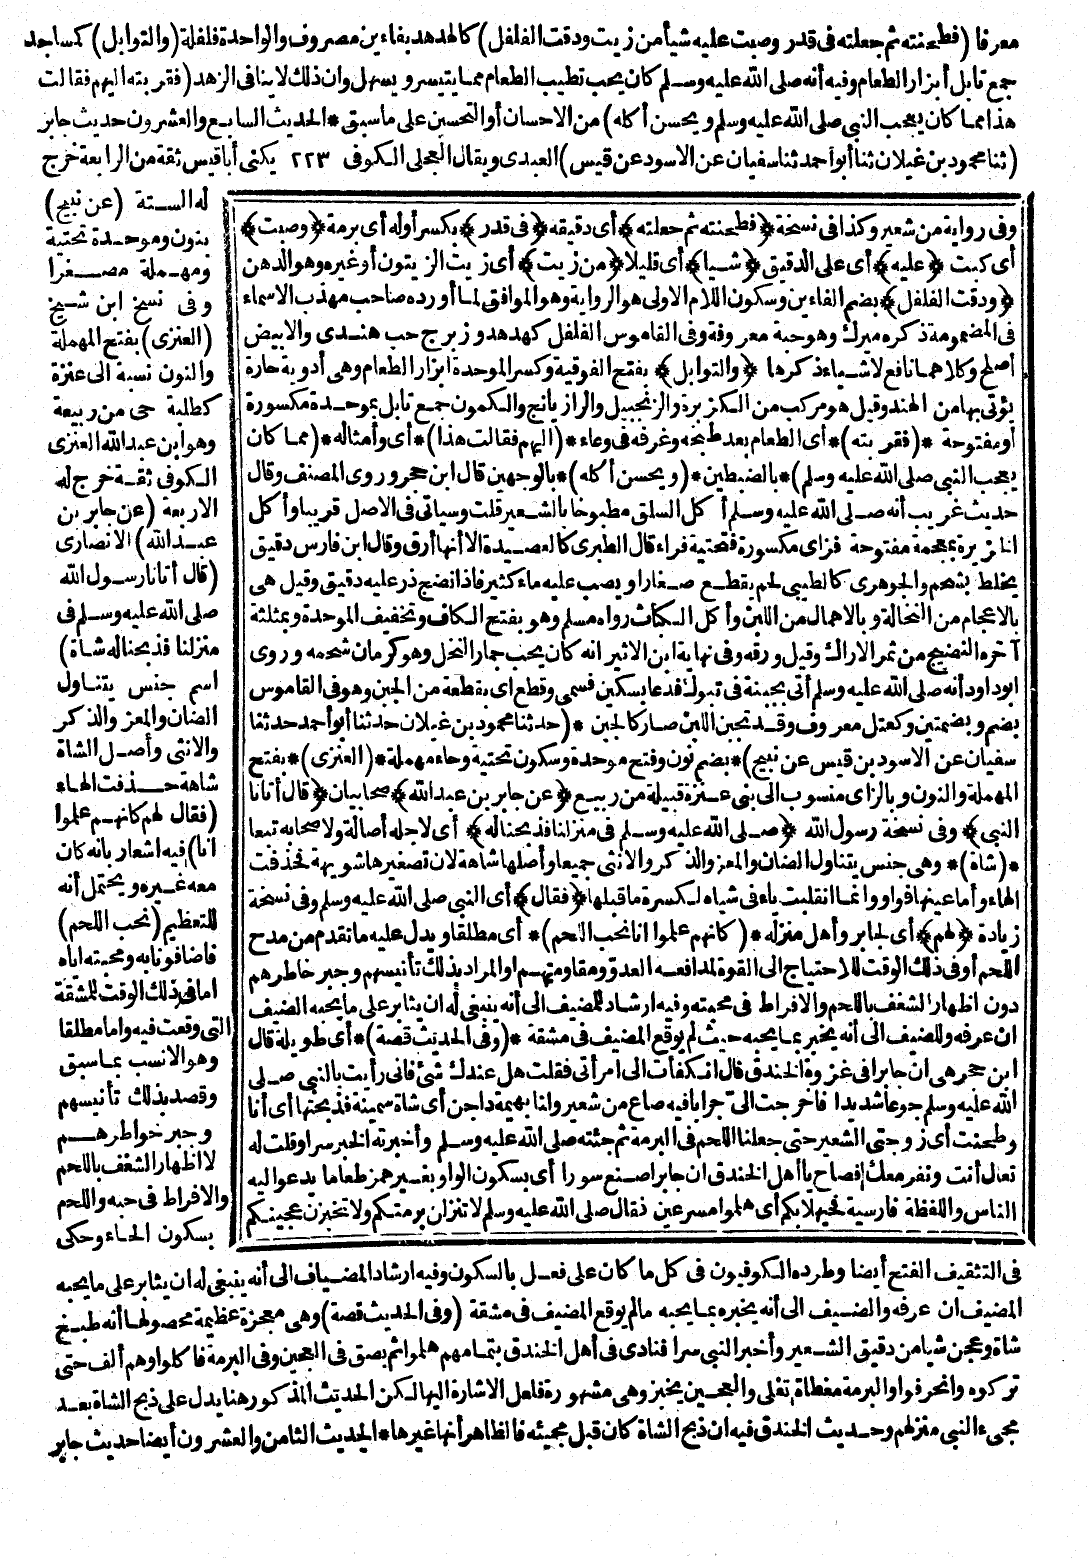 معرفا (فطحنته ثم جعلته فى قدر وصبت عليه شيأ من زيت ودقت الفلفل) كالهدهد بفاءين مصروف والواحدة فلفلة (والتوابل) كمساجد
جمع تابل أبزار الطعام وفيه أنه صلى الله عليه وسلم كان يحب تطيب الطعام مما يتيسر ويسهل وان ذلك لا ينافى الزهد (فقربته اليهم فقالت
هذا مما كان يعجب النبى صلى الله عليه وسلم ويحسن أكله) من الاحسان أو التحسين على ما سبق * الحديث السابع والعشرون حديث جابر
(ثنا محمود بن غيلان ثنا أبو أحمد ثنا سفيان عن الاسود عن قيس) العبدى ويقال العجلى الكوفى ٢٢٣ يكنى أبا قيس ثقة من الرابعة خرج
له الستة (عن نبيح)
بنون وموحدة تحتية
ومهملة مصغرا
وفى نسخ ابن شبيح
(العنزى) بفتح المهملة
والنون نسبة الى عنزة
كطلبة حى من ربيعة
وهو ابن عبد الله العنزى
الكوفى ثقة خرج له
الاربعة (عن جابر بن
عبد الله) الانصارى
(قال أتانا رسول الله
صلى الله عليه وسلم فى
منزلنا فذبحنا له شاة)
اسم جنس يتناول
الضان والمعز والذكر
والانثى وأصل الشاة
شاهة حذفت الهاء
(فقال لهم كانهم علموا
انا) فيه اشعار بانه كان
معه غيره ويحتمل أنه
للتعظيم (نحب اللحم)
فاضافونا به ومحبته اياه
اما فى ذلك الوقت للمشقة
التى وقعت فيه واما مطلقا
وهو الانسب بما سبق
وقصد بذلك تأنيسهم
وجبر خواطرهم
لا اظهار الشغف باللحم
والافراط فى حبه واللحم
بسكون الحاء وحكى
وفى رواية من شعير وكذا فى نسخة ﴿فطحنته ثم جعلته﴾ أى دقيقه ﴿فى قدر﴾ بكسر أوله أى برمة ﴿وصبت﴾
أى كبت ﴿عليه﴾ أى على الدقيق ﴿شيا﴾ أى قليلا ﴿من زيت﴾ أى زيت الزيتون أو غيره وهو الدهن
﴿ودقت الفلفل﴾ بضم الفاءين وسكون اللام الاولى هو الرواية وهو الموافق لما أورده صاحب مهذب الاسماء
فى المضمومة ذكره ميرك وهو حبة معروفة وفى القاموس الفلفل كهدهد وزبرج حب هندى والابيض
أصلح وكلاهما نافع لاشياء ذكرها ﴿والتوابل﴾ بفتح الفوقية وكسر الموحدة ابزار الطعام وهى أدوية حارة
يؤتى بها من الهند وقيل هو مركب من الكزبرة والزنجبيل والرازيانج والكمون جمع تابل بموحدة مكسورة
أو مفتوحة *(فقربته)* أى الطعام بعد طبخه وغرفه فى وعاء *(اليهم فقالت هذا)* أى وأمثاله *(مما كان
يعجب النبى صلى الله عليه وسلم)* بالضبطين *(ويحسن أكله)* بالوجهين قال ابن حجر وروى المصنف وقال
حديث غريب أنه صلى الله عليه وسلم أكل السلق مطبوخا بالشعير قلت وسيأتى فى الاصل قريبا وأكل
الخزيرة بمعجمة مفتوحة فزاى مكسورة فتحتية فراء قال الطبرى كالعصيدة الا أنها أرق وقال ابن فارس دقيق
يخلط بشحم والجوهرى كالطيبى لحم يقطع صغارا ويصب عليه ماء كثير فاذا نضج ذر عليه دقيق وقيل هى
بالاعجام من النخالة وبالاهمال من اللبن وأكل الكباث رواه مسلم وهو بفتح الكاف وتخفيف الموحدة وبمثلثة
آخره النضيج من ثمر الاراك وقيل ورقه وفى نهاية ابن الاثير انه كان يحب جمار النخل وهو كرمان شحمه وروى
ابو داود أنه صلى الله عليه وسلم أتى بجبنة فى تبوك فدعا بسكين فسمى وقطع اى بقطعة من الجبن وهو فى القاموس
بضم وبضمتين وكعتل معروف وقد تجبن اللبن صار كالجبن *(حدثنا محمود بن غيلان حدثنا أبو أحمد حدثنا
سفيان عن الاسود بن قيس عن نبيح)* بضم نون وفتح موحدة وسكون تحتية وحاء مهملة *(العنزى)* بفتح
المهملة والنون وبالزاى منسوب الى بنى عنزة قبيلة من ربيع ﴿عن جابر بن عبد الله﴾ صحابيان ﴿قال أتانا
النبى﴾ وفى نسخة رسول الله ﴿صلى الله عليه وسلم فى منزلنا فذبحنا له﴾ أى لاجله أصالة ولاصحابه تبعا
*(شاة)* وهى جنس يتناول الضان والمعز والذكر والانثى جميعا وأصلها شاهة لان تصغيرها شويهة فحذفت
الهاء وأما عينها فواو وانما انقلبت ياء فى شياه لكسرة ما قبلها ﴿فقال﴾ أى النبى صلى الله عليه وسلم وفى نسخة
زيادة ﴿لهم﴾ أى لجابر وأهل منزله *(كانهم علموا انا نحب اللحم)* أى مطلقا ويدل عليه ما تقدم من مدح
اللحم أو فى ذلك الوقت للاحتياج الى القوة لمدافعة العدو ومقاومتهم او المراد بذلك تأنيسهم وجبر خاطرهم
دون اظهار الشغف باللحم والافراط فى محبته وفيه ارشاد للمضيف الى أنه ينبغى له ان يثابر على ما يحبه الضيف
ان عرفه وللضيف الى أنه يخبر بما يحبه حيث لم يوقع المضيف فى مشقة *(وفى الحديث قصة)* أى طويلة قال
ابن حجر هى ان جابرا فى غزوة الخندق قال انكفأت الى امرأتى فقلت هل عندك شئ فانى رأيت بالنبى صلى
الله عليه وسلم جوعا شديدا فاخرجت الىّ جرابا فيه صاع من شعير ولنا بهيمة داجن أى شاة سمينة فذبحتها أى أنا
وطحنت أى زوجتى الشعير حتى جعلنا اللحم فى البرمة ثم جئته صلى الله عليه وسلم وأخبرته الخبر سرا وقلت له
تعال أنت ونفر معك فصاح يا أهل الخندق ان جابرا صنع سورا أى بسكون الواو بغير همز طعاما يدعو اليه
الناس واللفظة فارسية فحيهلا بكم أى هلموا مسرعين فقال صلى الله عليه وسلم لا تنزلن برمتكم ولا تخبزن عجينكم
فى التثقيف الفتح أيضا وطرده الكوفيون فى كل ما كان على فعل بالسكون وفيه ارشاد المضياف الى أنه ينبغى له ان يثابر على ما يحبه
المضيف ان عرفه والضيف الى أنه يخبره بما يحبه مالم يوقع المضيف فى مشقة (وفى الحديث قصة) وهى معجزة عظيمة محصولها أنه طبخ
شاة وعجن شيا من دقيق الشعير وأخبر النبى سرا فنادى فى أهل الخندق بتمامهم هلموا ثم بصق فى العجين وفى البرمة فاكلوا وهم ألف حتى
تركوه وانحرفوا والبرمة مغطاة تغلى والعجين يخبز وهى مشهورة فلعل الاشارة اليها لكن الحديث المذكور هنا يدل على ذبح الشاة بعد
مجىء النبى منزلهم وحديث الخندق فيه ان ذبح الشاة كان قبل مجيئه فالظاهر أنها غيرها * الحديث الثامن والعشرون أيضا حديث جابر